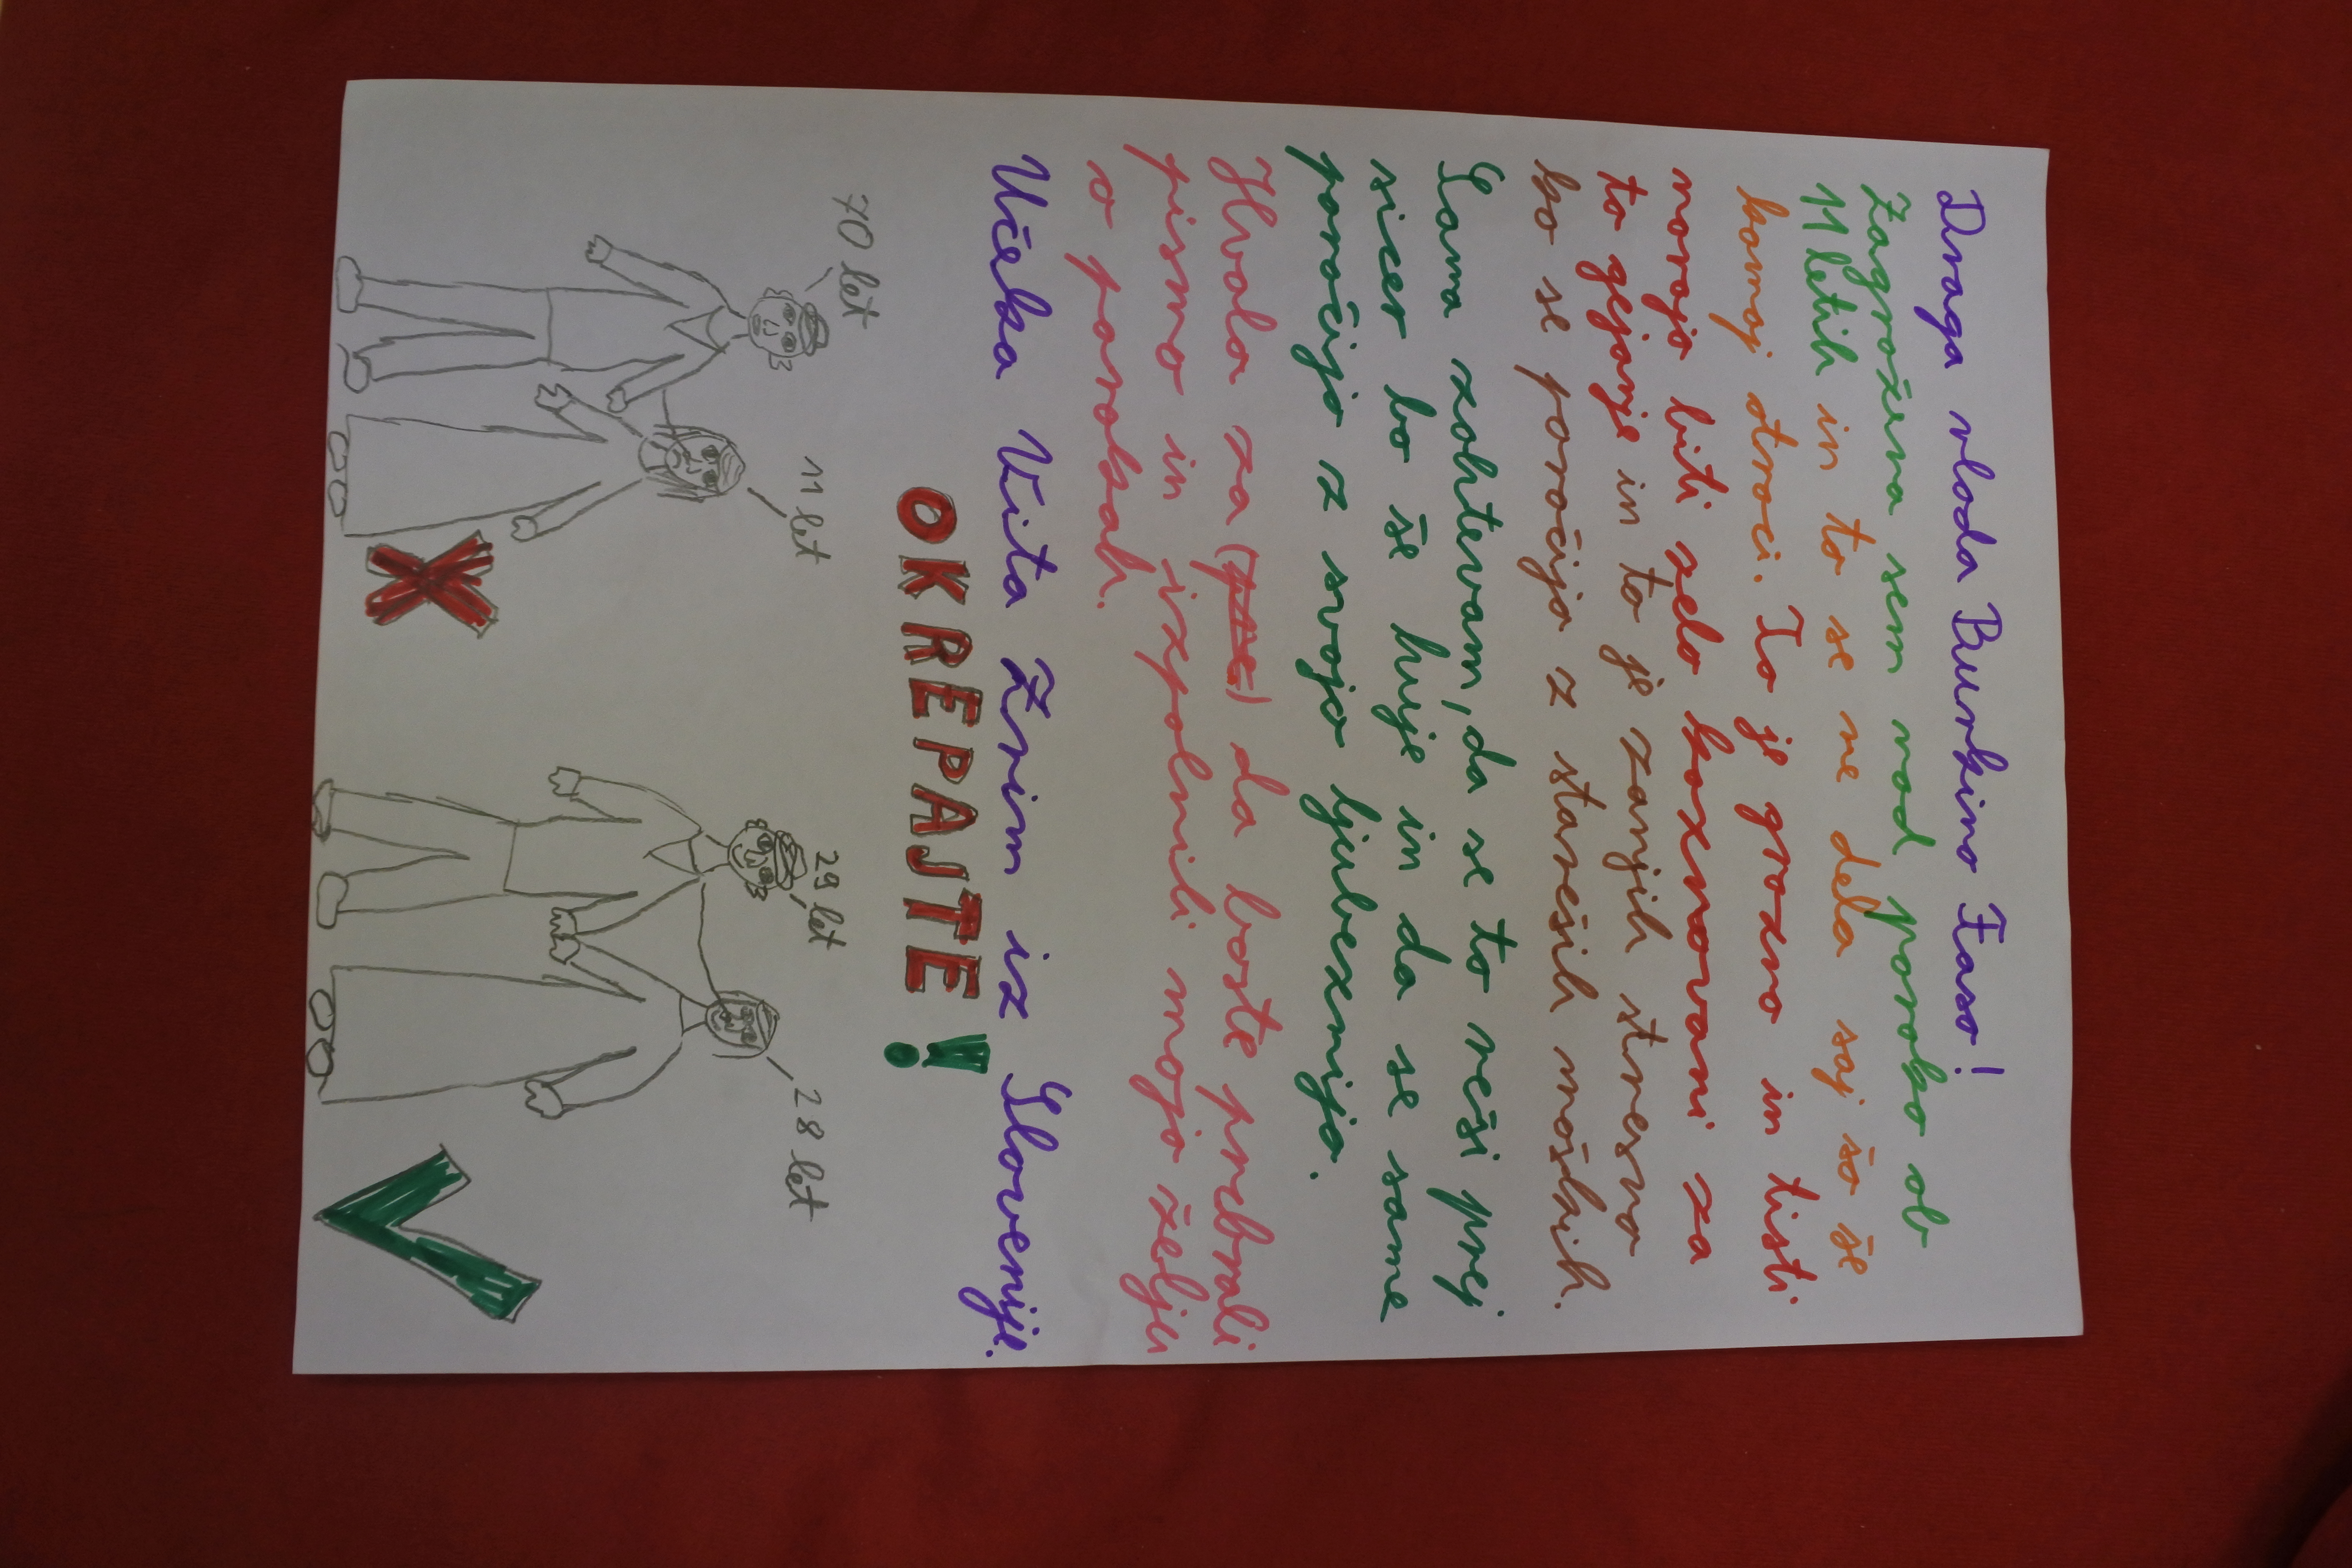 Draga vlada Burkino Faso!
Zagrožena sem nad poroko ob
11 letih in to se ne dela saj so še
komaj otroci. To je grozno in tisti
morajo biti zelo kaznovani za
to dejanje in to je zanjih stresno
ko se poročijo z stareših moških.
Sama zahtevam, da se to reši prej
sicer bo še huje in da se same
poročijo z svojo ljubeznijo.
Hvala za da boste prebrali
pismo in izpolnili mojo željo
o porokah.
Učeka Vita Zrim iz Slovenije.
OKREPAJTE!
70 let
11 let
29 let
28 let